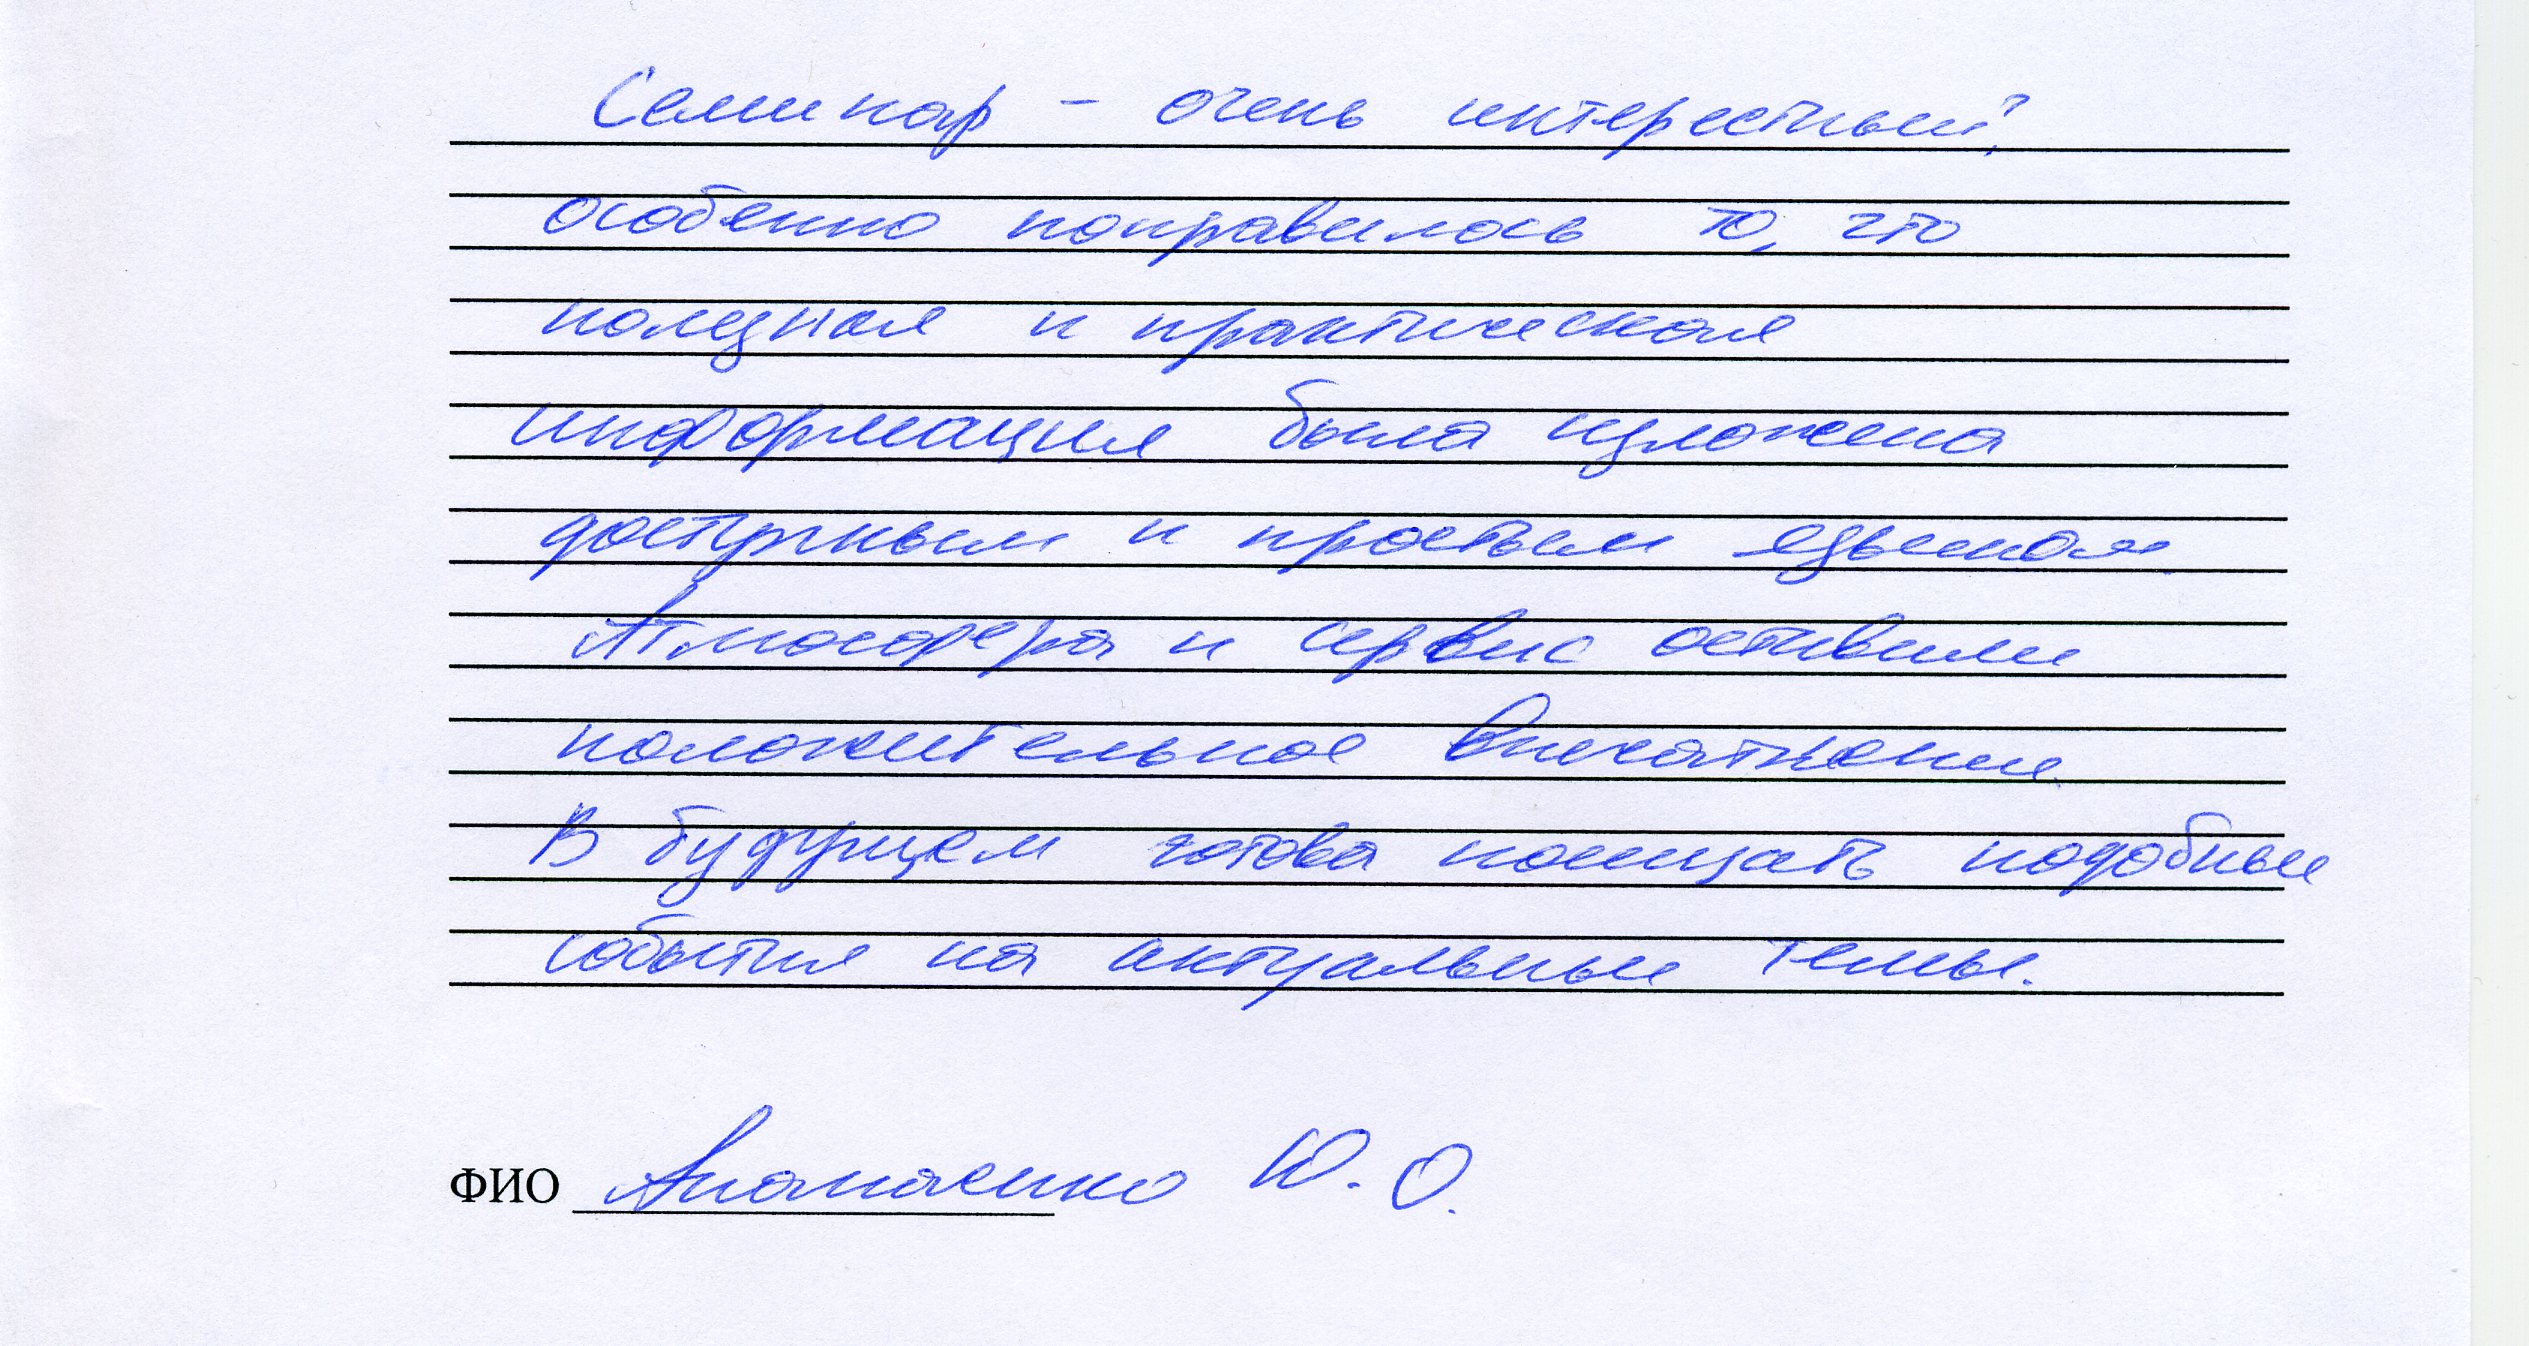 Семинар - очень интересный,
особенно понравилось то, что
полезная и практическая
информация была изложена
доступным и простым языком.
Атмосфера и сервис оставили
положительное впечатление.
В будущем готова посещать подобные
события на актуальные темы.
ФИО Ананаенко Ю. О.